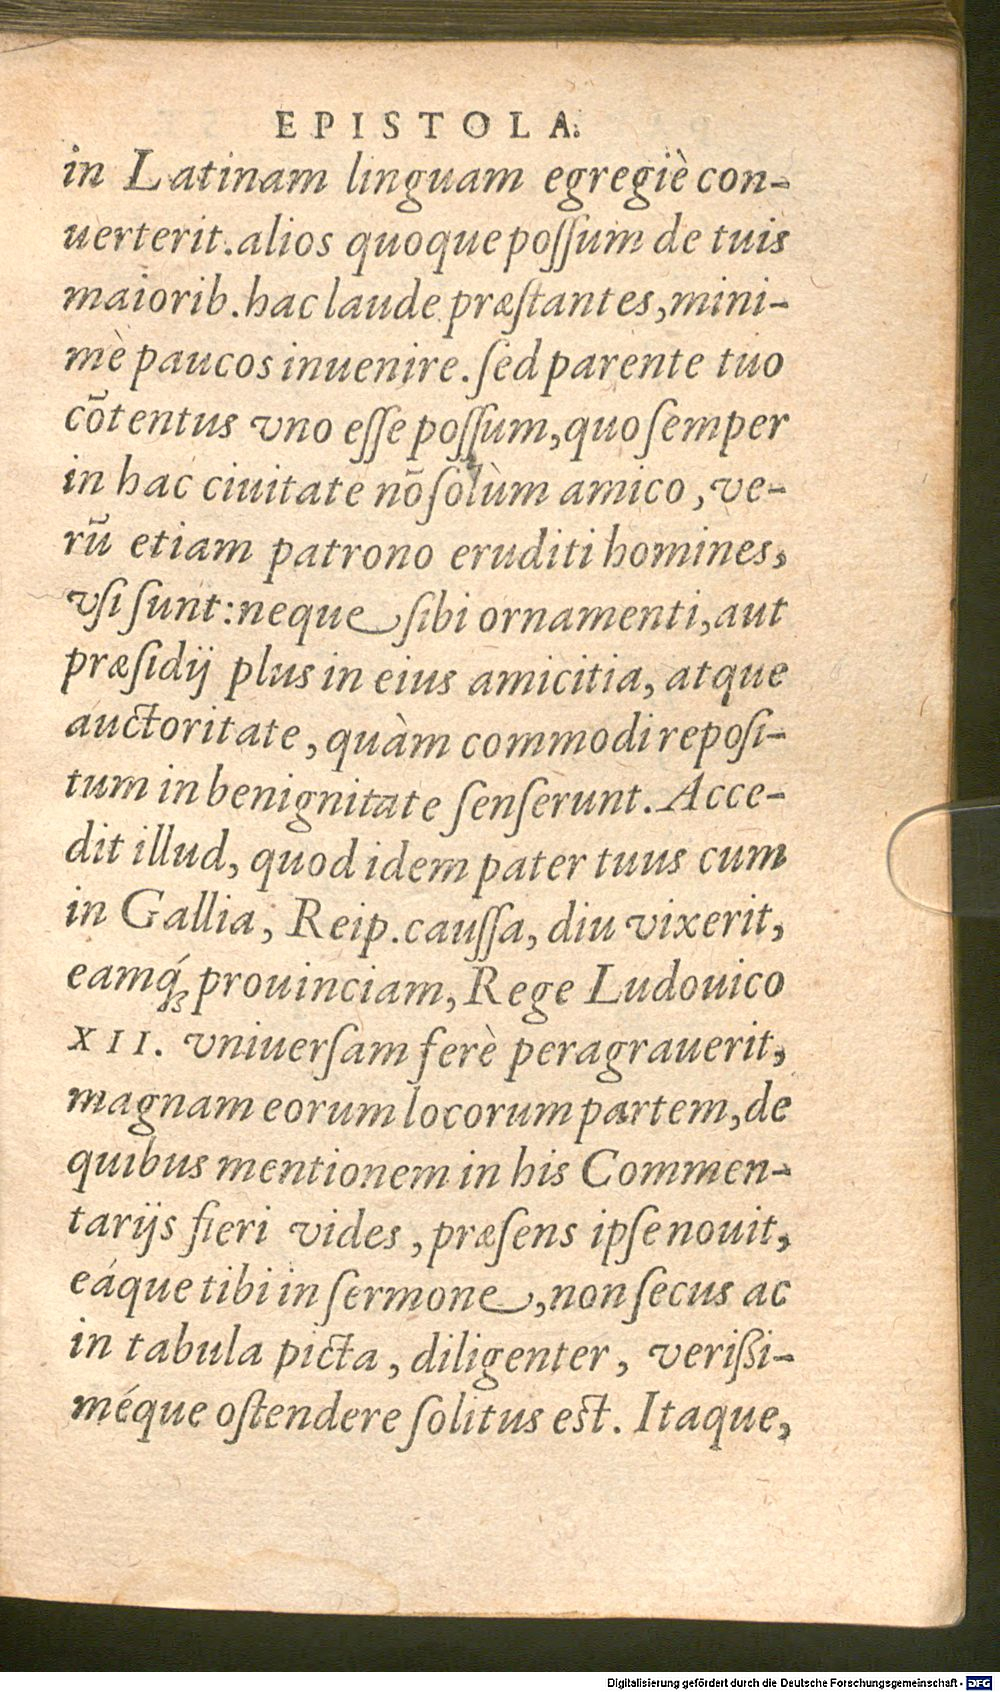 EPISTOLA.
in Latinam linguam egregiè con-
uerterit. alios quoque poſſum de tuis
maiorib. hac laude præſtantes, mini-
mè paucos inuenire. ſed parente tuo
cōtentus vno eſſe poſſum, quo ſemper
in hac ciuitate nō ſolùm amico, ve-
rū etiam patrono eruditi homines,
vſi ſunt: neque ſibi ornamenti, aut
præſidij plus in eius amicitia, atque
auctoritate, quàm commodi repoſi-
tum in benignitate ſenſerunt. Acce-
dit illud, quod idem pater tuus cum
in Gallia, Reip. cauſſa, diu vixerit,
eamq́ꝫ prouinciam, Rege Ludouico
XII. vniuerſam ferè peragrauerit,
magnam eorum locorum partem, de
quibus mentionem in his Commen-
tarijs fieri vides, præſens ipſe nouit,
eáque tibi in ſermone, non ſecus ac
in tabula picta, diligenter, veriſsi-
méque oſtendere ſolitus eſt. Itaque,
Digitalisierung gefördert durch die Deutsche Forschungsgemeinschaft - DFG